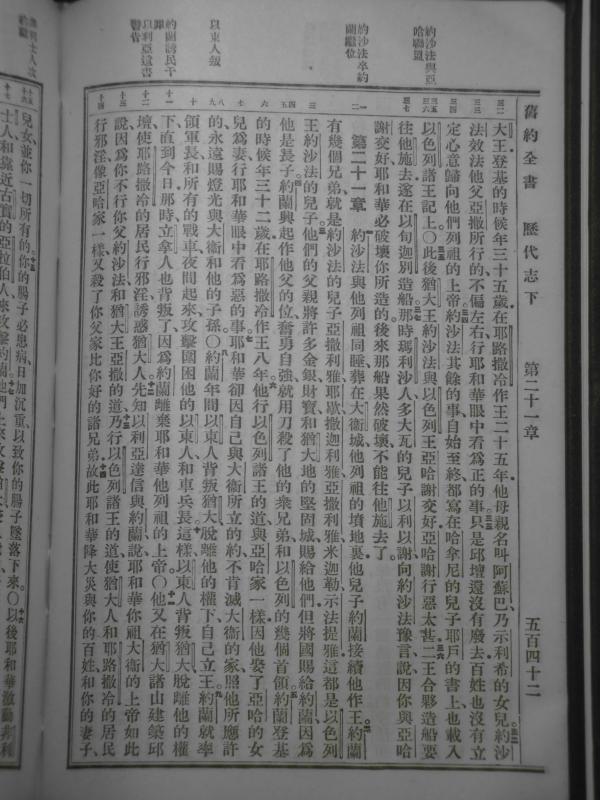 舊約全書　歷代志下　第二十一章　五百四十二
約沙法與亞哈聯盟
約沙法卒約蘭繼位
以東人叛
約蘭誘民干罪
以利亞遺書警告
三二 大王登基的時候年三十五歲在耶路撒冷作王二十五年他母親名叫阿蘇巴乃示利希的女兒約沙
三三 法效法他父亞撒所行的不偏左右行耶和華眼中看為正的事只是邱壇還沒有廢去百姓也沒有立
三四 定心意歸向他們列祖的上帝約沙法其餘的事自始至終都寫在哈拿尼的兒子耶戶的書上也載入
三五 三六 以色列諸王記上〇此後猶大王約沙法與以色列王亞哈謝交好亞哈謝行惡太甚二王合夥造船要
三七 往他施去遂在以旬迦別造船那時瑪利沙人多大瓦的兒子以利以謝向約沙法豫言說因你與亞哈
謝交好耶和華必破壞你所造的後來那船果然破壞不能往他施去了
一 第二十一章　約沙法與他列祖同睡葬在大衞城他列祖的墳地裏他兒子約蘭接續他作王約蘭
二 有幾個兄弟就是約沙法的兒子亞撒利雅耶歇撒迦利雅亞撒利雅米迦勒示法提雅這都是以色列
三 王約沙法的兒子他們的父親將許多金銀財寶和猶大地的堅固城賜給他們但將國賜給約蘭因為
四 五 他是長子約蘭興起作他父的位奮勇自強就用刀殺了他的衆兄弟和以色列的幾個首領約蘭登基
六 的時候年三十二歲在耶路撒冷作王八年他行以色列諸王的道與亞哈家一樣因他娶了亞哈的女
七 兒為妻行耶和華眼中看為惡的事耶和華卻因自己與大衞所立的約不肯滅大衞的家照他所應許
八 九 的永遠賜燈光與大衞和他的子孫〇約蘭年間以東人背叛猶大脫離他的權下自己立王約蘭就率
十 領軍長和所有的戰車夜間起來攻擊圍困他的以東人和車兵長這樣以東人背叛猶大脫離他的權
十一 下直到今日那時立拿人也背叛了因為約蘭離棄耶和華他列祖的上帝〇他又在猶大諸山建築邱
十二 壇使耶路撒冷的居民行邪淫誘惑猶大人先知以利亞達信與約蘭說耶和華你祖大衞的上帝如此
十三 說因為你不行你父約沙法和猶大王亞撒的道乃行以色列諸王的道使猶大人和耶路撒冷的居民
十四 行邪淫像亞哈家一樣又殺了你父家比你好的諸兄弟故此耶和華降大災與你的百姓和你的妻子
十五 十六 兒女並你一切所有的你的腸子必患病日加沉重以致你的腸子墜落下來〇以後耶和華激動非利
十七 士人和靠近古實的亞拉伯人來攻擊約蘭他們上來攻擊猶大